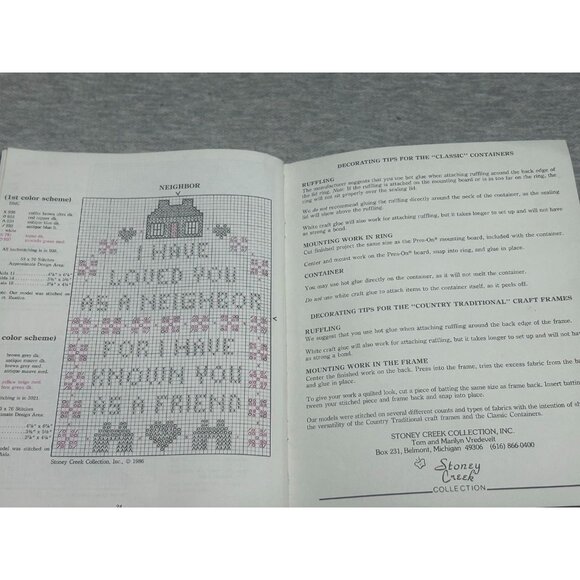 (1st color scheme)
DMC
white
All backstitching is in 930.
53 x 70 Stitches
Approximate Design Area:
color scheme)
brown grey dk.
antique mauve dk.
brown grey med.
antique mauve med.
yellow beige med.
is in 3021.
NEIGHBOR
I HAVE
LOVED YOU
AS A NEIGHBOR
FOR I HAVE
KNOWN YOU
AS A FRIEND
Stoney Creek Collection, Inc., © 1986
24
DECORATING TIPS FOR THE "CLASSIC" CONTAINERS
RUFFLING
The manufacturer suggests that you use hot glue when attaching ruffling around the back edge of
the lid ring. Note: If the ruffling is attached on the mounting board or is too far on the ring, the
ring will not sit properly over the sealing lid.
We do not recommend glueing the ruffling directly around the neck of the container, as the sealing
lid will show above the ruffling.
White craft glue will also work for attaching ruffling, but it takes longer to set up and will not have
as strong a bond.
MOUNTING WORK IN RING
Cut finished project the same size as the Press-On® mounting board, included with the container.
Center and mount work on the Press-On® board, snap into ring, and glue in place.
CONTAINER
You may use hot glue directly on the container, as it will not melt the container.
Do not use white craft glue to attach items to the container itself, as it peels off.
DECORATING TIPS FOR THE "COUNTRY TRADITIONAL" CRAFT FRAMES
RUFFLING
We suggest that you use hot glue when attaching ruffling around the back edge of the frame.
White craft glue will also work for attaching ruffling, but it takes longer to set up and will not have
as strong a bond.
MOUNTING WORK IN THE FRAME
Center the finished work on the back. Press into the frame, trim the excess fabric from the ba
and glue in place.
To give your work a quilted look, cut a piece of batting the same size as frame back. Insert batti
tween your stitched piece and frame back and snap into place.
Our models were stitched on several different counts and types of fabrics with the intention of sh
the versatility of the Country Traditional craft frames and the Classic Containers.
STONEY CREEK COLLECTION, INC.
Tom and Marilyn Vredevelt
Box 231, Belmont, Michigan 49306 (616) 866-0400
Stoney
Creek
COLLECTION